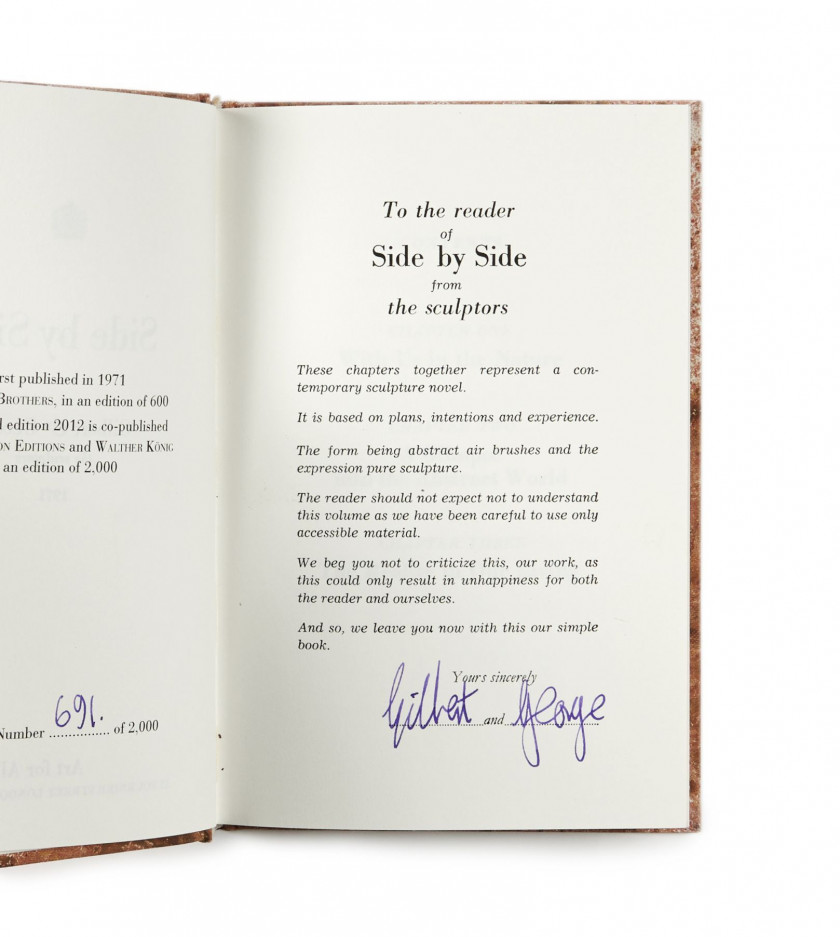 rst published in 1971
BROTHERS, in an edition of 600
edition 2012 is co-published
EDITIONS and WALTHER KÖNIG
an edition of 2,000
Number 691. of 2,000
To the reader
of
Side by Side
from
the sculptors
These chapters together represent a con-
temporary sculpture novel.
It is based on plans, intentions and experience.
The form being abstract air brushes and the
expression pure sculpture.
The reader should not expect not to understand
this volume as we have been careful to use only
accessible material.
We beg you not to criticize this, our work, as
this could only result in unhappiness for both
the reader and ourselves.
And so, we leave you now with this our simple
book.
Yours sincerely
Gilbert and George